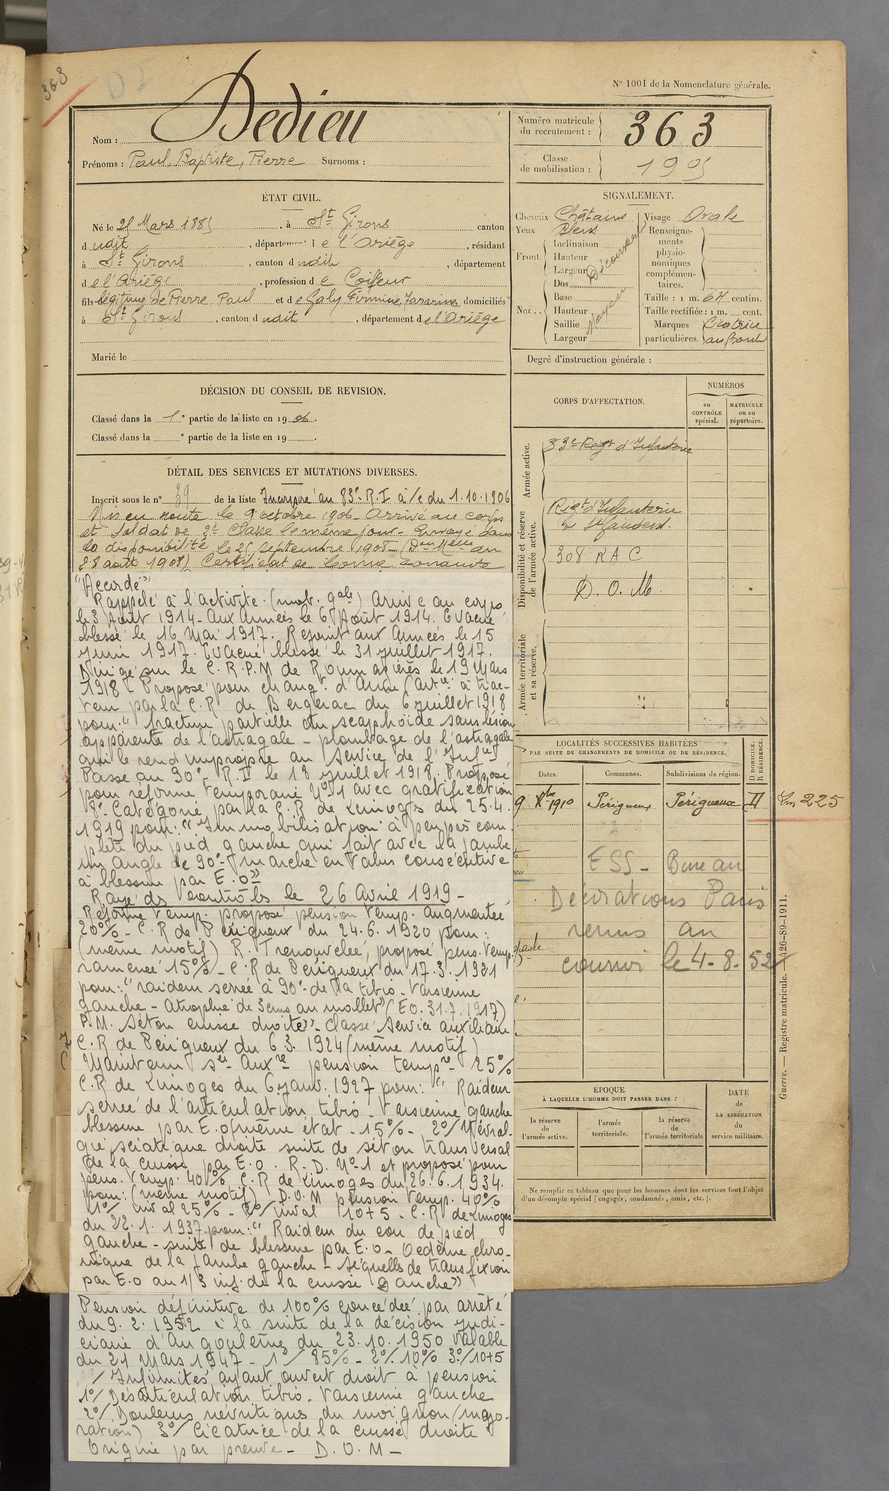 363
N° 1001 de la Nomenclature générale.
Nom : Dedieu
Prénoms : Paul, Baptiste, Pierre Surnoms :
Numéro matricule du recrutement : 363
Classe de mobilisation : 1905
ÉTAT CIVIL.
Né le 25 Mars 1885, à St Girons canton
dudit, département de l'Ariège, résidant
à St Girons, canton dudit, département
de l'Ariège, profession de Coiffeur
fils légitime de Pierre Paul et de Galy Firmine domiciliés
à St Girons, canton dudit, département de l'Ariège
Marié le
SIGNALEMENT.
Cheveux Châtains Visage Ovale
Yeux Bleus
Front Inclinaison Hauteur Largeur Découvert
Nez Dos Base Hauteur Saillie Largeur Moyen
Renseignements physionomiques complémentaires.
Taille : 1 m. 67 centim.
Taille rectifiée : 1 m. cent.
Marques particulières. Cicatrice au front
Degré d'instruction générale :
DÉCISION DU CONSEIL DE REVISION.
Classé dans la 1e partie de la liste en 1906.
Classé dans la e partie de la liste en 19
DÉTAIL DES SERVICES ET MUTATIONS DIVERSES.
Inscrit sous le n° 39 de la liste Incorporé au 83e R.I à/c du 1.10.1906
Mis en route le 9 octobre 1906. Arrivé au corps
et soldat de 2e Classe le même jour. Envoyé dans
la disponibilité le 25 septembre 1908 (Don Mlle du
28 août 1908) Certificat de bonne conduite
"Accordé"
Rappelé à l'activité (mob. gale) Arrivé au corps
le 3 Août 1914. Aux Armées le 6 Août 1914. Evacué
blessé le 16 Mai 1917. Rejoint aux Armées le 15
juin 1917. Evacué blessé le 31 juillet 1917.
Dirigé sur le C.R.P.M de Roumazières le 19 Mars
1918 - Proposé pour changt d'Arme (Artie à trac-
teur par la C.R. de Bergerac du 6 juillet 1918
pour: "fracture partielle du scaphoïde sans lésion
apparente de l'astragale - plombage de l'astragale
qui le rend impropre au Service de l'Infie
Passé au 30e R.I le 18 juillet 1918. Proposé
pour réforme temporaire N°1 avec gratification
8e Catégorie par la C.R de Limoges du 25.4.
1919 pour: "Immobilisation à peu près com-
plète du pied gauche qui fait avec la jambe
un angle de 90° - marche en talus consécutive
à blessure par E.O"
Rayé des contrôles le 26 Avril 1919 -
Réforme temp. proposé pension temp. augmentée
20% - C.R de Périgueux du 24.6.1920 pour:
(même motif) R.T renouvelée, proposé pens. temp.
ramenée 15% - C.R de Périgueux du 17.3.1921
pour: "raideur serrée à 90° de la tibio-tarsienne
gauche - atrophie de 3 cms au mollet" (E.O.31.7.1917)
P.M. Séton cuisse droite" - Classé Service auxiliaire
C.R de Périgueux du 6.3.1924 (même motif)
Maintenu sce auxre pension tempre 25%
C.R de Limoges du 6 janv. 1927 pour: "Raideur
serrée de l'articulation tibio-tarsienne gauche
blessure par E.O (même état - 15% - 2°/ Névral-
gie sciatique droite suite de séton transversal
de la cuisse par E.O. R.D. N°1 et proposé pour
pens. temp. 40% C.R de Limoges du 26.6.1934.
pour: (même motif). D.O.M pension temp. 40%
1°/ nival 25% - 2°/ nival 10+5 - C.R de Limoges
du 22.1.1937 pour: "Raideur du cou de pied
gauche - suite de blessure par E.O - Oedème chro-
nique de la jambe gauche - séquelles de transfixion
par E.O au 1/3 inf. de la cuisse gauche"
Pension définitive de 100% concédée par arrêté
du 9.2.1952 à la suite de la décision judi-
ciaire d'Angoulême du 23.10.1950 valable
du 21 Mars 1947 - 1°/ 85% - 2°/ 10% 3°/ 10+5
Infirmités ayant ouvert droit à pension
1°/ Désarticulation tibio-tarsienne gauche
2°/ Douleurs névritiques du moignon (majo-
ration) 3°/ Cicatrice de la cuisse droite
Origine par preuve - D.O.M -
CORPS D'AFFECTATION.
NUMÉROS
au CONTRÔLE spécial.
MATRICULE ou au répertoire.
Armée active.
83e Regt d'Infanterie
Disponibilité et réserve de l'armée active.
Regt d'Infanterie
de St Gaudens.
308 R A C
D. O. M.
Armée territoriale et sa réserve.
LOCALITÉS SUCCESSIVES HABITÉES
PAR SUITE DE CHANGEMENTS DE DOMICILE OU DE RÉSIDENCE.
Dates. Communes. Subdivisions de région. D DOMICILE. R RÉSIDENCE.
9 Xbre 1910 Périgueux Périgueux D
225
ESS - Bureau
Décorations Paris
remis au
courrier le 4-8-52
ÉPOQUE
À LAQUELLE L'HOMME DOIT PASSER DANS :
la réserve de l'armée active.
l'armée territoriale.
la réserve de l'armée territoriale
DATE de LA LIBÉRATION du service militaire.
Ne remplir ce tableau que pour les hommes dont les services font l'objet
d'un décompte spécial (engagés, condamnés, omis, etc.).
Guerre. — Registre matricule. — 226-89-1911.